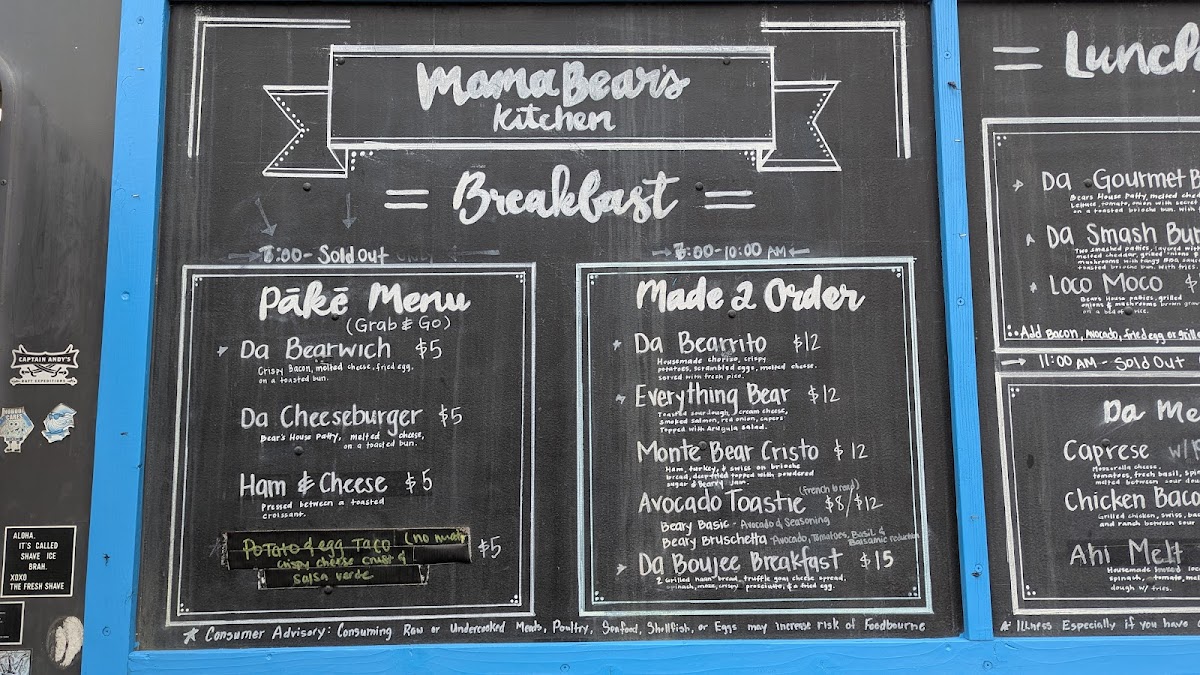 Mama Bear's
Kitchen
= Breakfast =
:00 - Sold Out
Pākē Menu
(Grab & Go)
Da Bearwich $5
Crispy Bacon, melted cheese, fried egg.
on a toasted bun.
Da Cheeseburger $5
Bear's House Patty, melted cheese,
on a toasted bun.
Ham & Cheese $5
Pressed between a toasted
croissant.
Potato & egg Taco (no meat) $5
crispy cheese crust &
salsa verde
:00-10:00 AM
Made 2 Order
Da Bearrito $12
Housemade chorizo, crispy
potatoes, scrambled eggs, melted cheese.
served with fresh pico.
Everything Bear $12
Toasted sourdough, cream cheese,
smoked salmon, red onion, capers
Topped with Arugula salad.
Monte Bear Cristo $12
Ham, turkey, & swiss on brioche
bread, deep fried topped with powdered
sugar & Beary Jam.
Avocado Toastie (french bread) $8/$12
Beary Basic - Avocado & Seasoning
Beary Bruschetta - Avocado, Tomatoes, Basil &
Balsamic reduction
Da Boujee Breakfast $15
2 Grilled naan bread, truffle goat cheese spread,
spinach, crispy prosciutto, & a fried egg.
* Consumer Advisory: Consuming Raw or Undercooked Meats, Poultry, Seafood, Shellfish, or Eggs may increase risk of Foodbourne
= Lunch
Da Gourmet B
Bears House Patty, melted ched
Lettuce, tomato, onion with secret
on a toasted brioche bun. with
Da Smash Bur
Two smashed patties, layered with
melted cheddar, grilled onions &
mushrooms with tangy BBQ sauc
toasted brioche bun. With fries.
Loco Moco $
Bears House patties, grilled
onions & mushrooms brown grav
on a bed of rice.
Add Bacon, Avocado, fried egg or grille
11:00 AM - Sold Out
Da Me
Caprese w/
Mozzarella cheese,
tomatoes, fresh basil, spin
melted between sour dou
Chicken Baco
Grilled chicken, swiss, bac
and ranch between sour
Ahi Melt
Housemade loc
spinach, tomato, mel
dough w/ fries.
* Illness Especially if you have
CAPTAIN ANDY'S
RAFT EXPEDITIONS
ALOHA.
IT'S CALLED
SHAVE ICE
BRAH.
XOXO
THE FRESH SHAVE